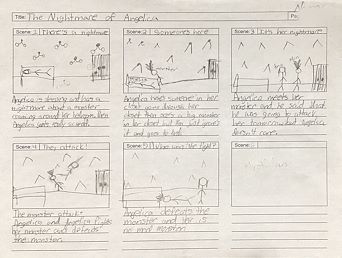 Title: The Nightmare of Angelica
Scene: 1 There's a nightmare
Scene: 2 Someone's here
Scene: 3 It's her nightmare
Angelica is sleeping and has a
nightmare about a monster
Angelica was really scared
Angelica hears someone in her
closet
closet then sees a big monster
in her closet but she just ignores
it and goes to bed.
Angelica meets her
monster and he said that
he was going to attack
her tomorrow but Angelica
doesn't care.
Scene: 4 They attack!
Scene: 5 Who won the fight?
Scene: 6
The monster attack
Angelica and Angelica fights
her monster and defeats
the monster.
Angelica defeats the
monster and her is
no more monster.